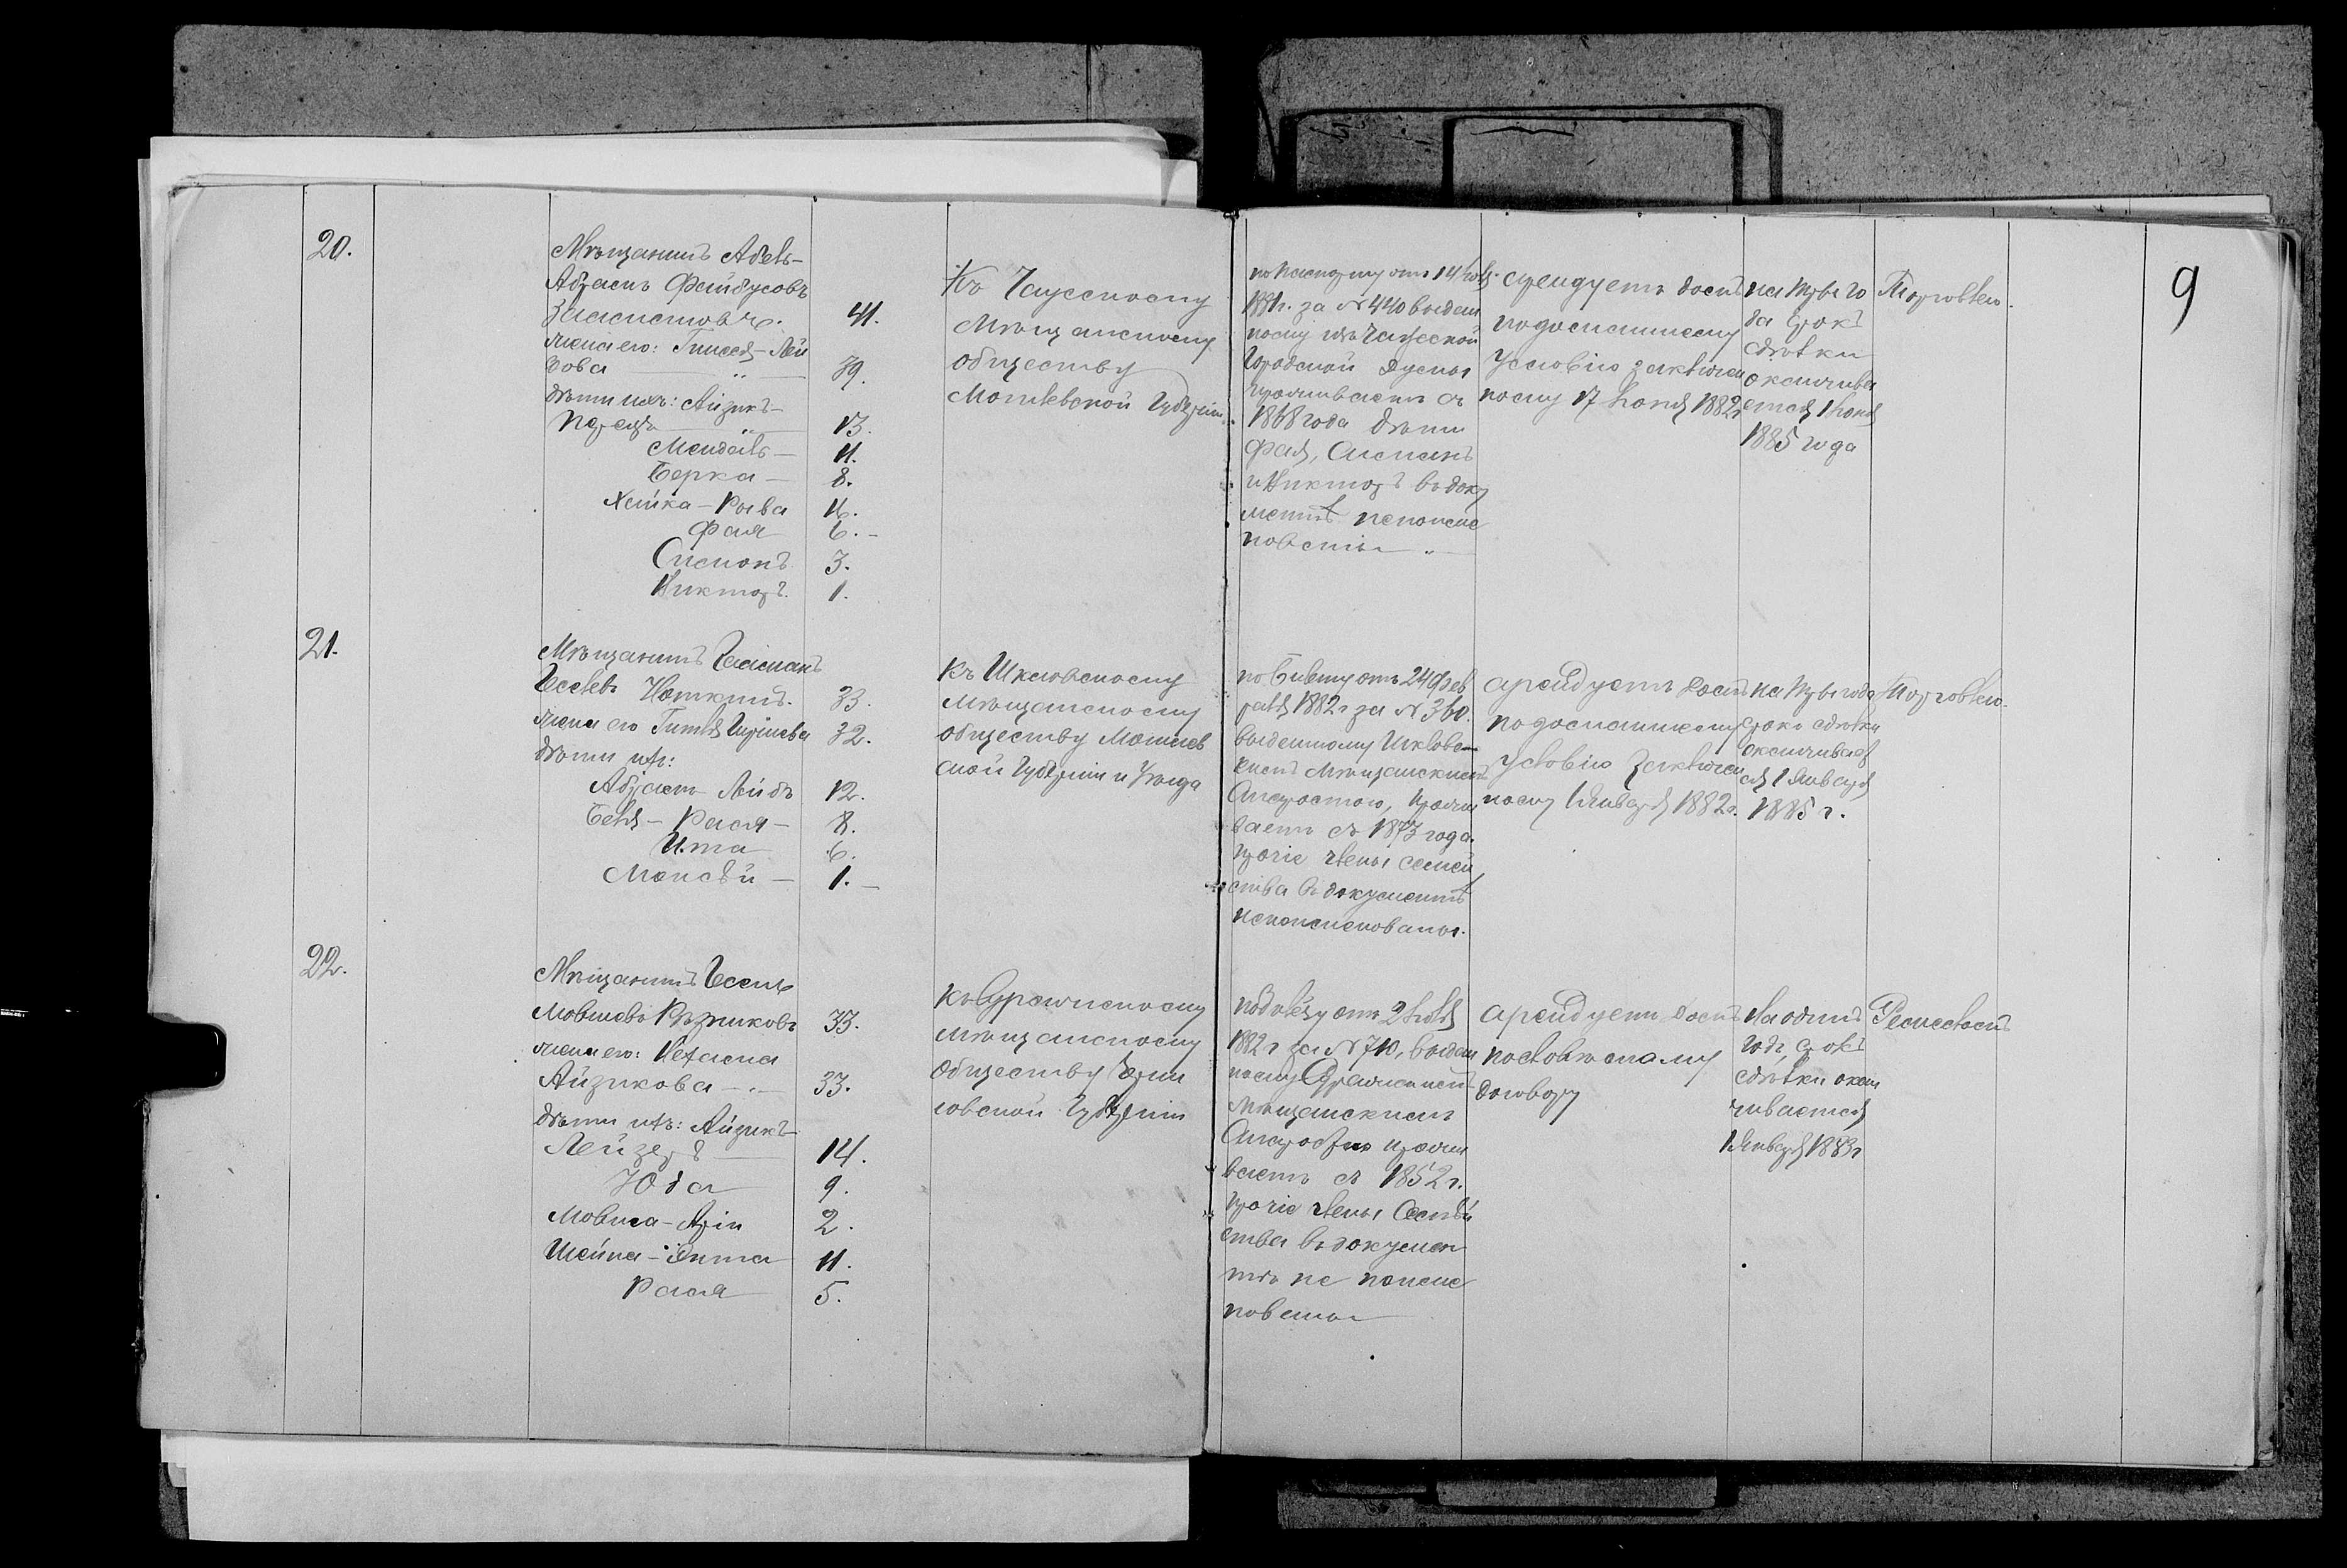 9
20.
Мѣщанинъ Абель-
Абрамъ Файбусовъ
41.
жена его: Лей
зова 39.
дѣти ихъ: Айзикъ-
Перецъ 13.
Мендель - 11.
Берка - 8.
Хейка-Рыва 16.
Фая 6.-
Симонъ 3.
1.
Къ Чаусскому
Мѣщанскому
обществу
Могилевской Губерніи
по паспорту отъ 14
1881 г. за № 440 выдан
ному изъ Чаусской
Городской Думы
проживаетъ съ
1868 года дѣти
Фая, Симонъ
и въ доку
ментѣ непоиме
нованы „
арендуетъ домъ
по домашнему
условію заключен
ному 17 1882 г
на три го
да срокъ
сдѣлки
оканчива
ется 1
1885 года
Торговлею.
21.
Мѣщанинъ
33.
жена его 32.
дѣти ихъ:
Абрамъ Лейбъ 12.
Беля - Рася - 8.
Ита 6.
Мовсѣй - 1.-
Къ Шкловскому
мѣщанскому
обществу Могилев
ской Губерніи и Уѣзда
по билету отъ 24 Фев
раля 1882 г за № 360.
выданному Шкловс
кимъ Мѣщанскимъ
Старостою, прожи
ваетъ съ 1873 года.
прочіе члены семей
ства въ документѣ
непоименованы.
арендуетъ домъ
по домашнему
условію заключен
ному 1 Января 1882 г.
на три года
срокъ сдѣлки
оканчивает
ся 1 Января
1885 г.
Торговлею.
22.
Мѣщанинъ
Мовшевъ Рѣзниковъ 33.
жена его: Нехама
Айзикова - 33.
дѣти ихъ: Айзикъ-
Лейзеръ 14.
Юда 9.
Мовша-Арія 2.
Шейна- 11.
Рася 5.
къ Суражскому
мѣщанскому
обществу Черни
говской Губерніи
отъ 2
1882 г за № 710, выдан
ному Суражскимъ
Мѣщанскимъ
Старостою прожи
ваетъ съ 1852 г.
прочіе члены Семей
ства въ докумен
тѣ не поиме
нованы
арендуетъ домъ
по словесному
договору
На одинъ
годъ, срокъ
сдѣлки окан
чивается
1 Января 1883 г
Ремесломъ